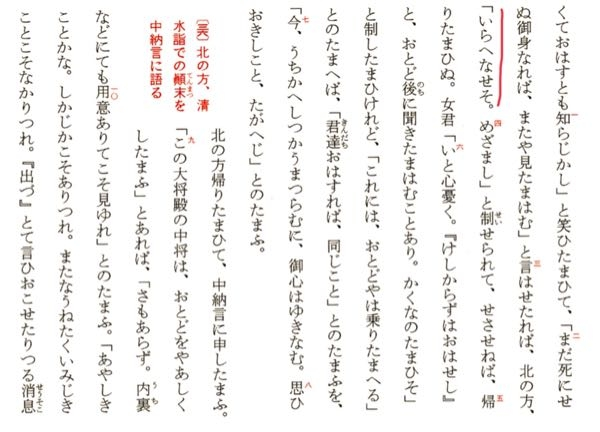 くておはすとも知らじかし」と笑ひたまひて、「まだ死にせ
ぬ御身なれば、またや見たまはむ」と言はせたれば、北の方、
「いらへなせそ。めざまし」と制せられて、せさせねば、帰
りたまひぬ。女君「いと心憂く。『けしからずはおはせし』
と、おとど後に聞きたまはむことあり。かくなのたまひそ」
と制したまひけれど、「これには、おとどやは乗りたまへる」
とのたまへば、「君達おはすれば、同じこと」とのたまふを、
「今、うちかへしつかうまつらむに、御心はゆきなむ。思ひ
おきしこと、たがへじ」とのたまふ。
〔三〕北の方、清
水詣での顚末を
中納言に語る
北の方帰りたまひて、中納言に申したまふ。
「この大将殿の中将は、おとどをやあしく
したまふ」とあれば、「さもあらず。内裏
などにても用意ありてこそ見ゆれ」とのたまふ。「あやしき
ことかな。しかじかこそありつれ。またなうねたくいみじき
ことこそなかりつれ。『出づ』とて言ひおこせたりつる消息